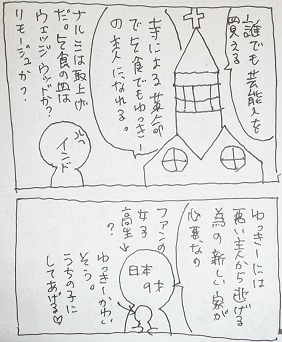 誰でも芸能人を
買える
寺による革命
で乞食でもゆっきー
の主人になれる。
ナルミは取上げ
だ。乞食の皿は
ウェッジウッドか?
リモージュか?
インド
ゆっきーには
悪い主人から逃げる
為の新しい家が
必要なの
ファンの
女子
高生?
日本
9才
ゆっきーかわい
そう。
うちの子に
してあげる♡